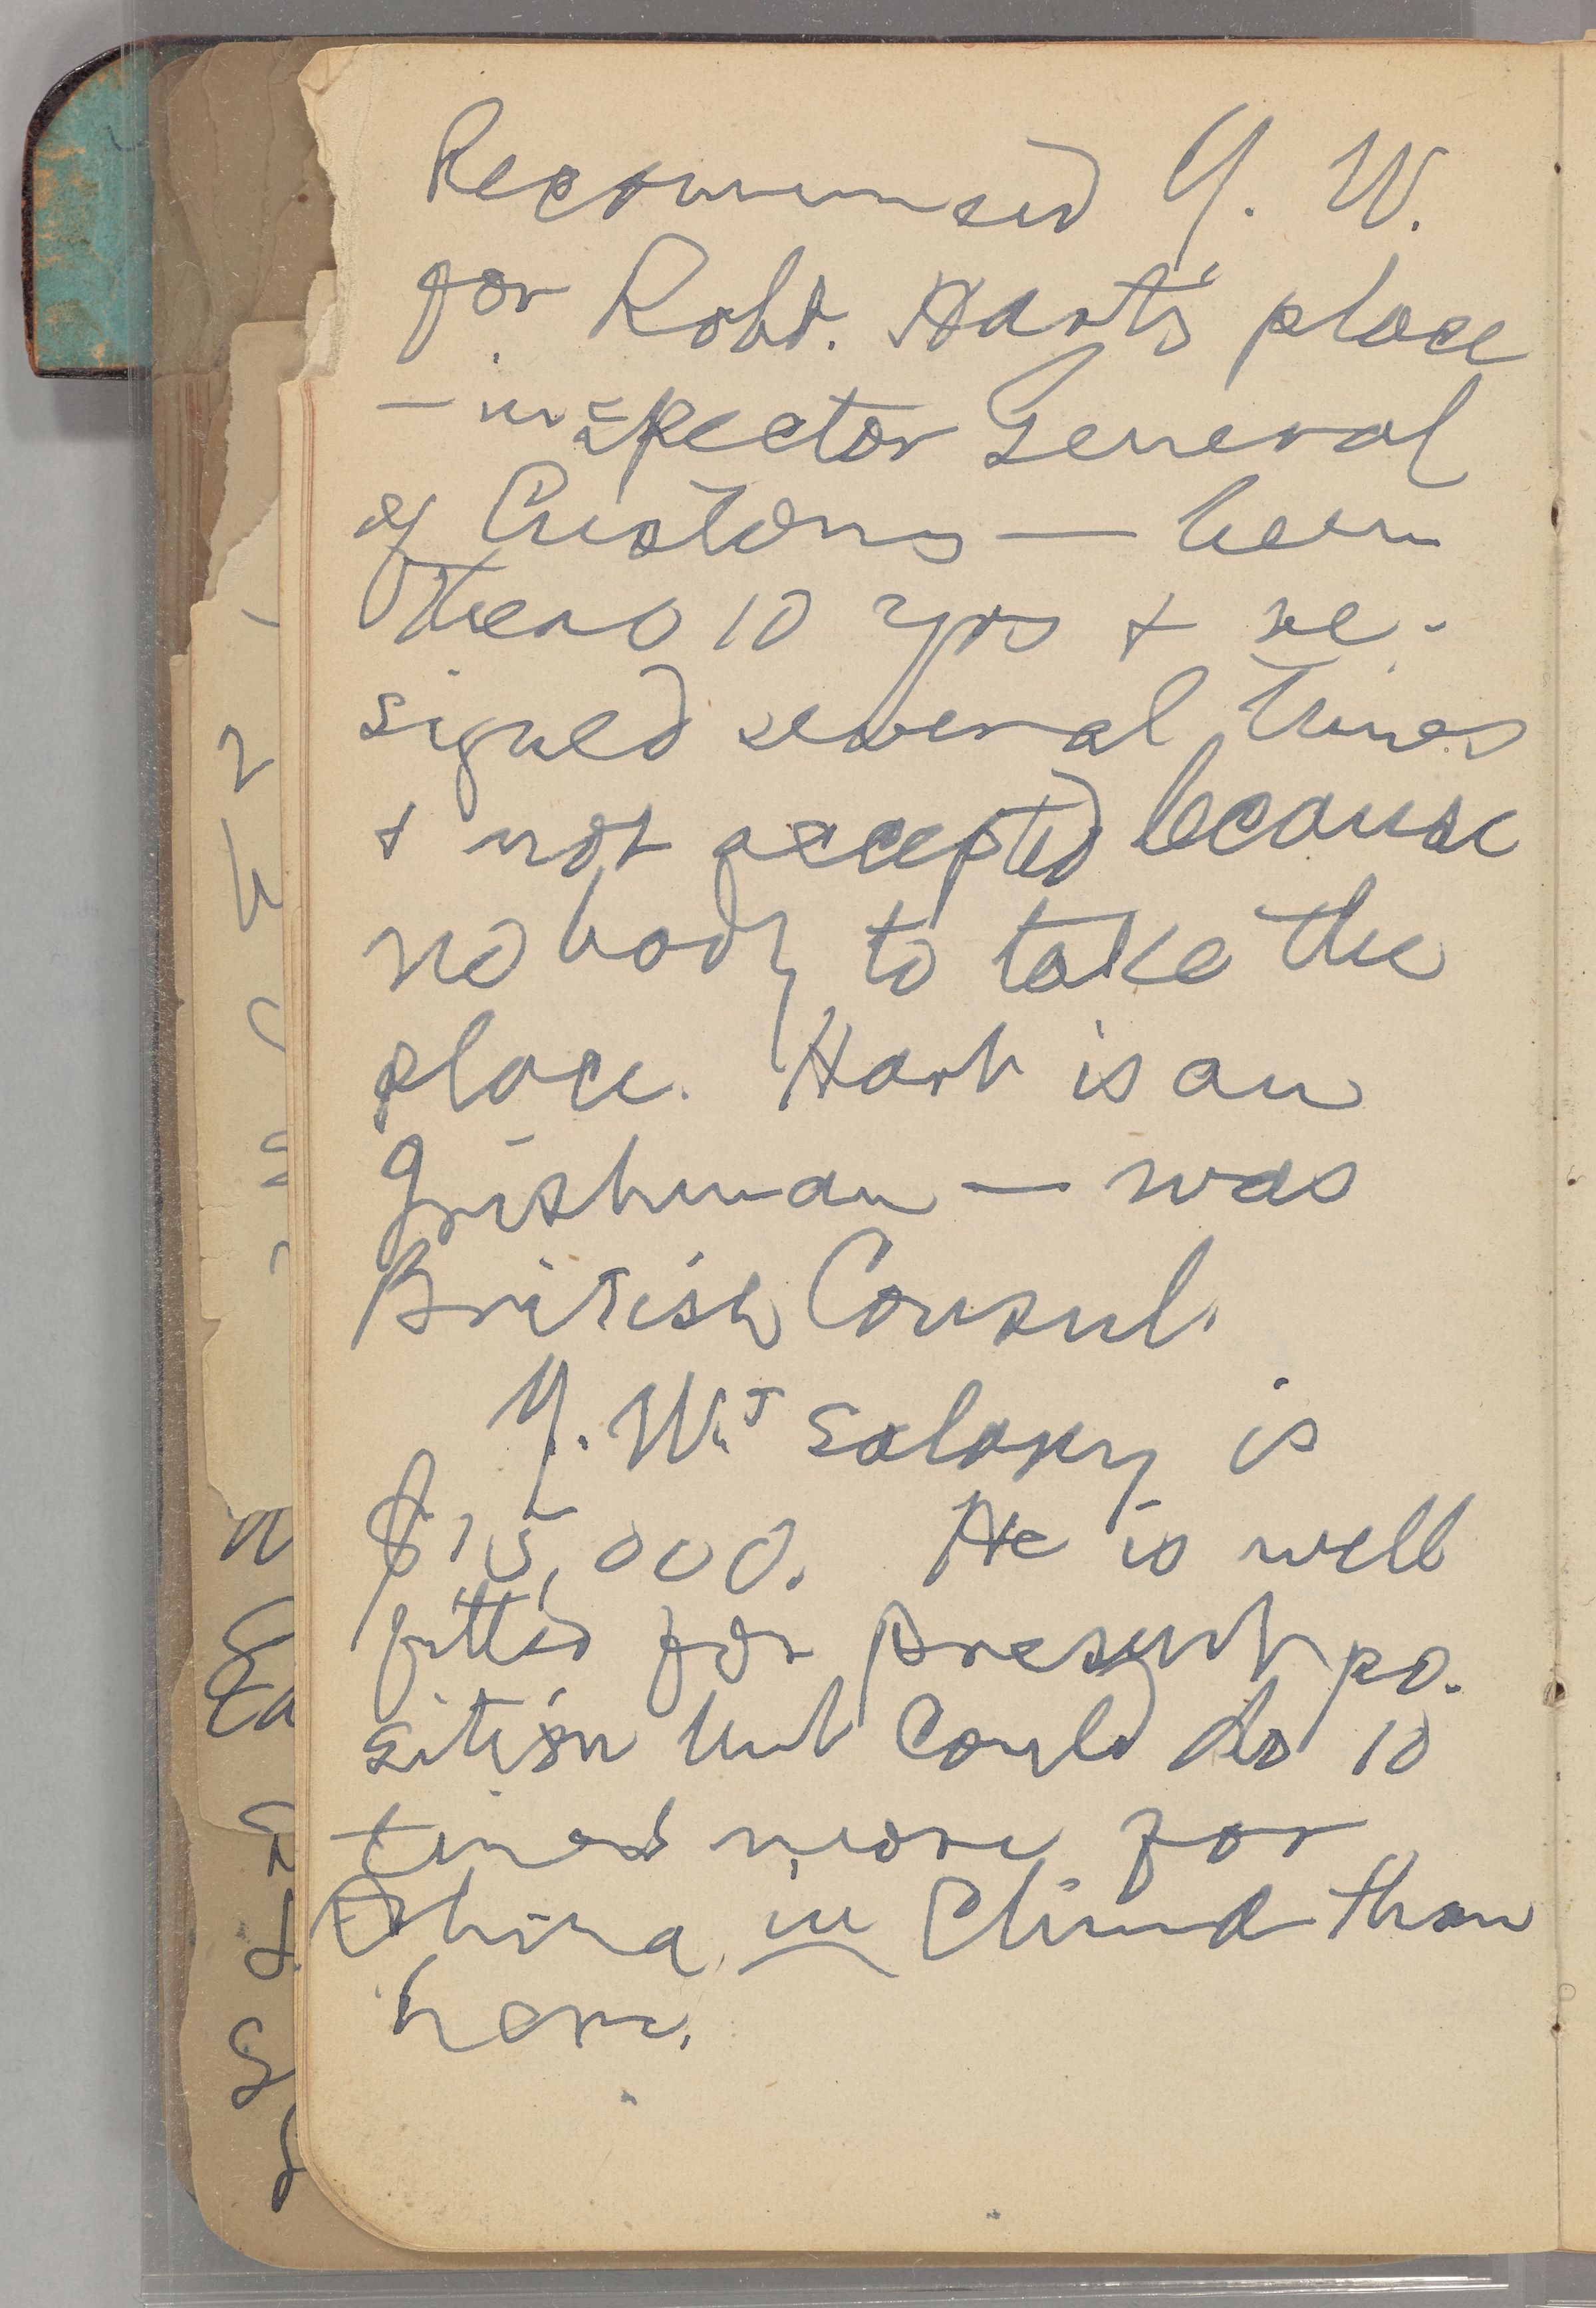 Recommend Y. W.
for Robt. Hart's place
— inspector General
of Customs — been
there 10 yrs & re-
signed several times
& not accepted because
nobody to take the
place. Hart is an
Irishman — was
British Consul.
Y. W.'s salary is
$15,000. He is well
fitted for present po-
sition but could do 10
times more for
China in China than
here.